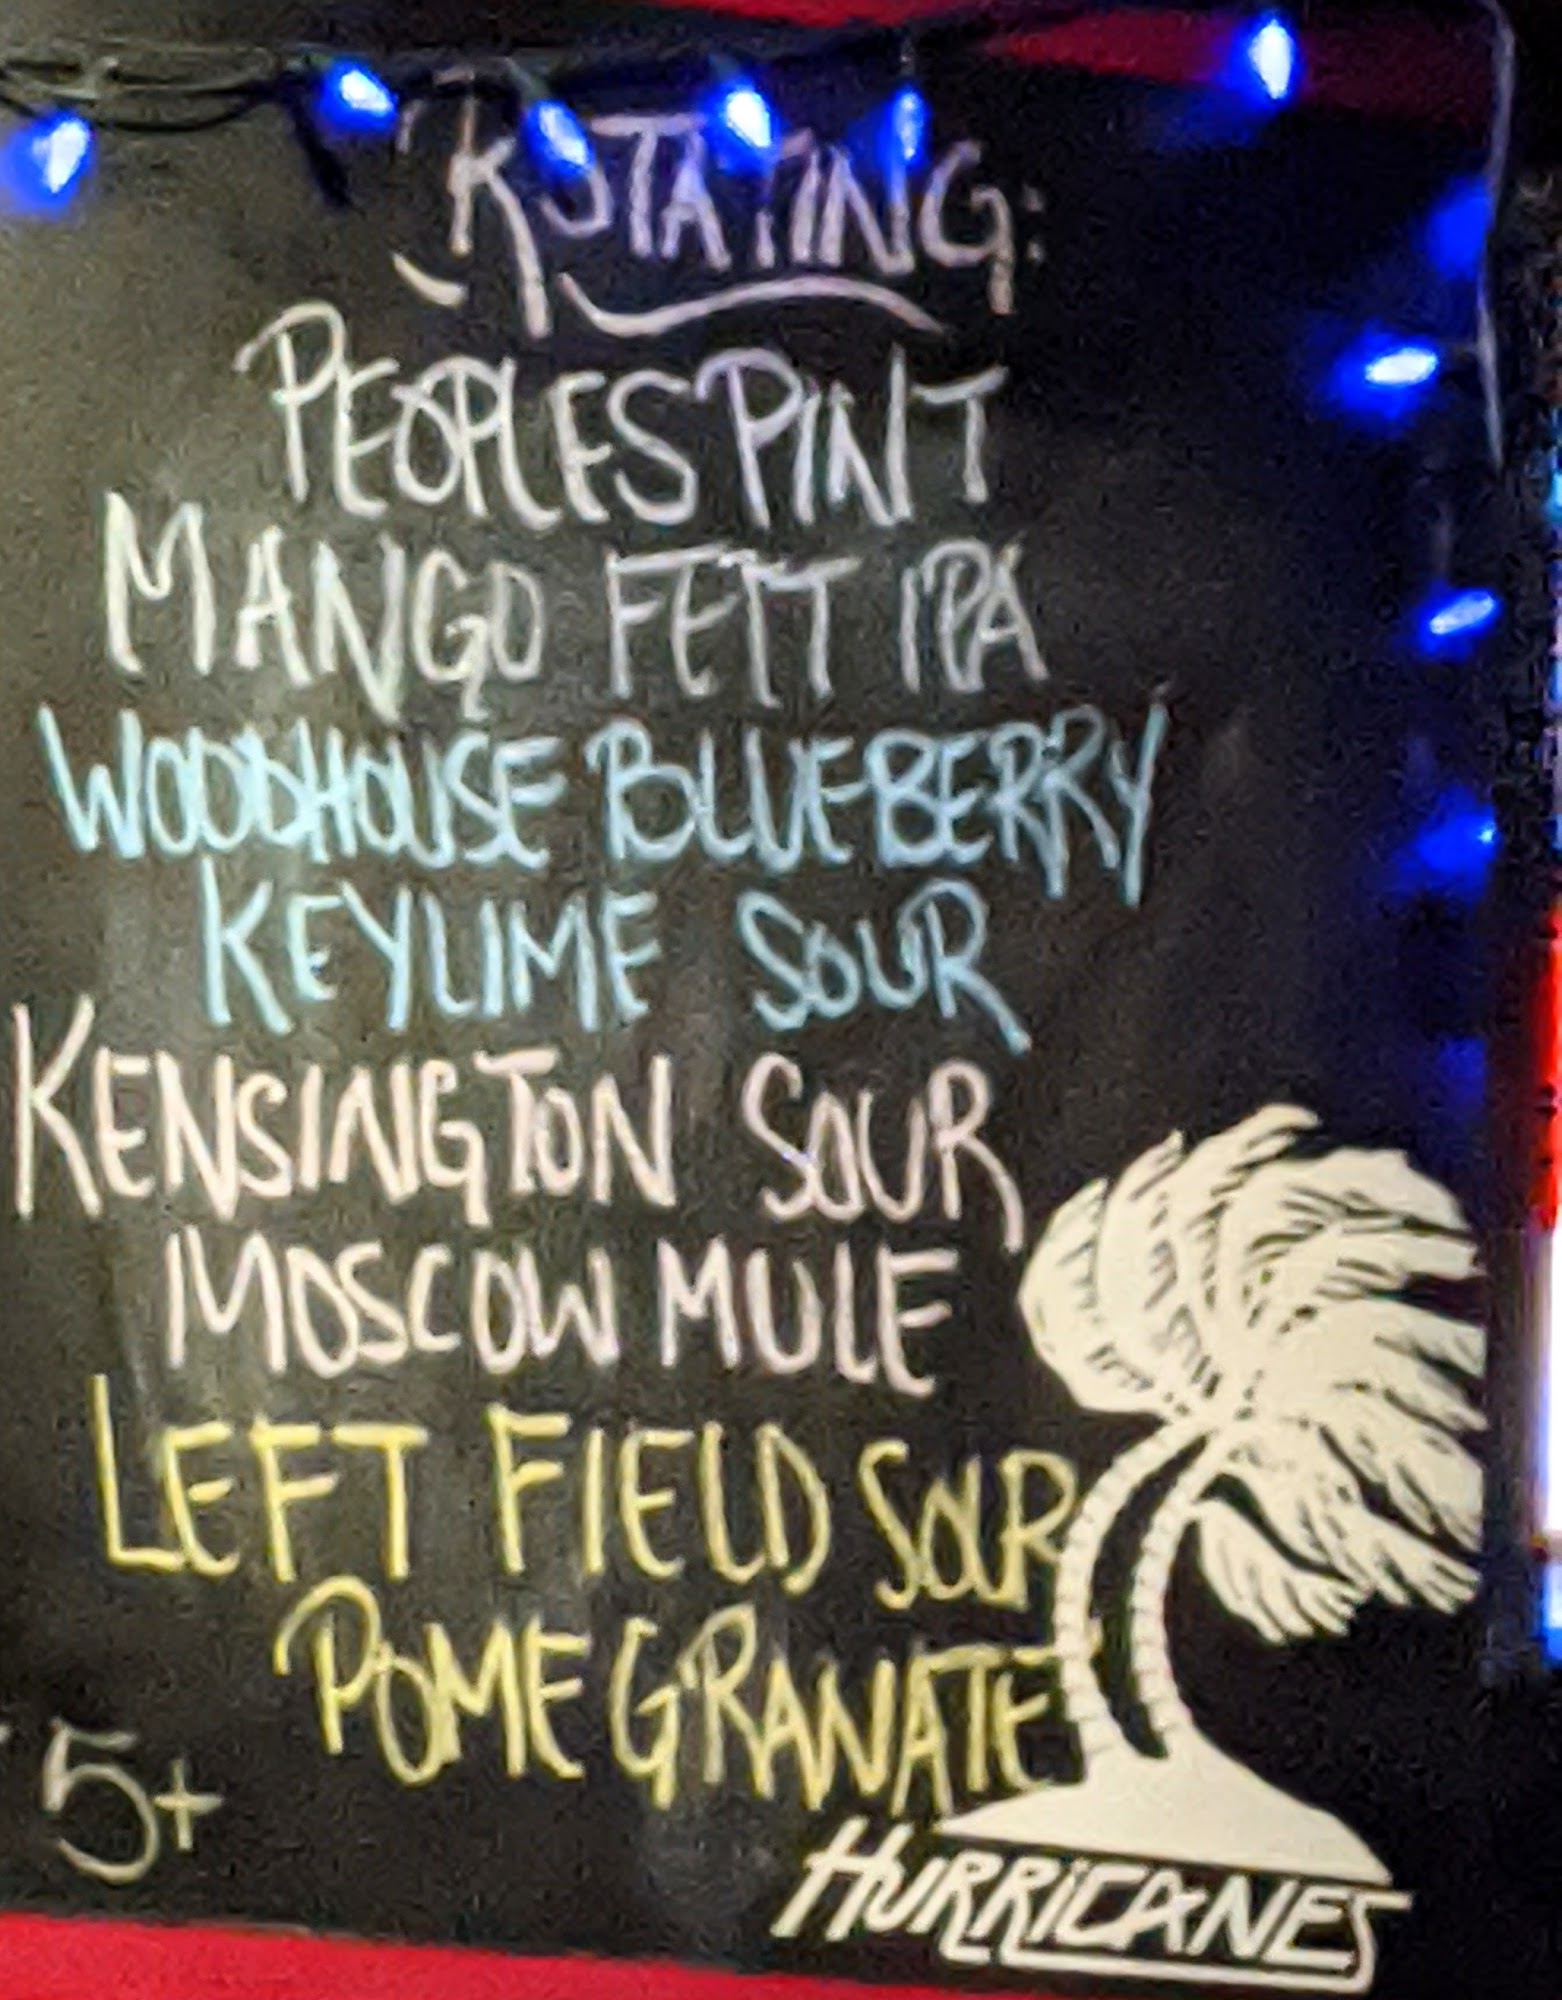 ROTATING:
PEOPLES PINT
MANGO FETT IPA
WOODHOUSE BLUEBERRY
KEYLIME SOUR
KENSINGTON SOUR
MOSCOW MULE
LEFT FIELD SOUR
POMEGRANATE
5+
HURRICANES